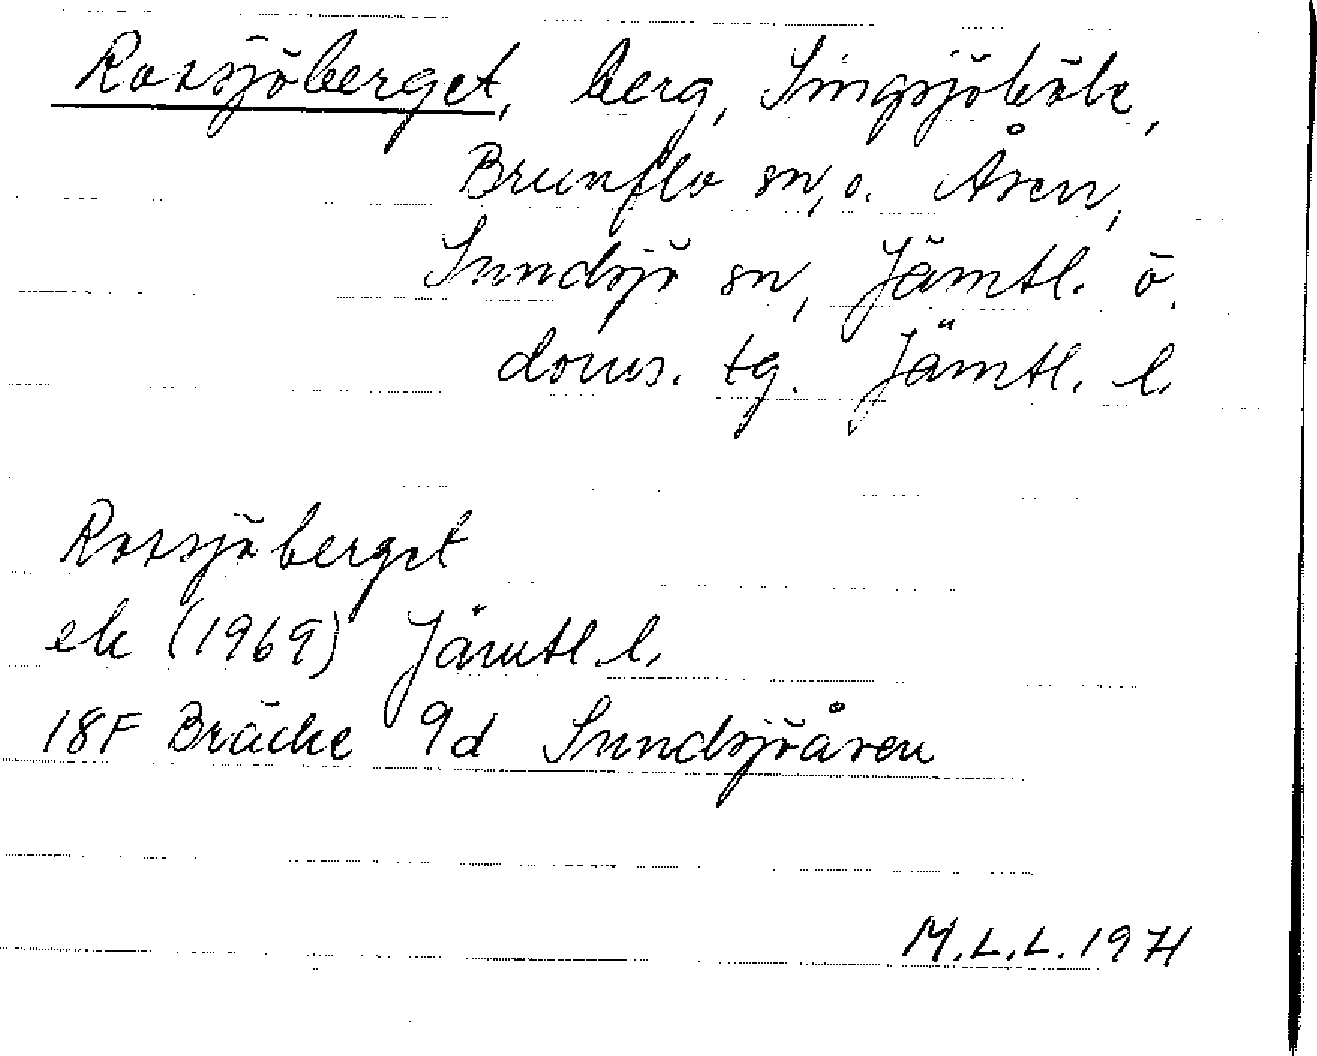 Rossjöberget, berg, Singsjöbök,
Brunflo sn, o. Åsen,
Sundsjö sn, Jämtl. ö.
doms. tg. Jämtl. l.
Rossjöberget
ek (1969) Jämtl. l.
18F Bräcke 9d Sundsjöåsen
M.L.L. 1971